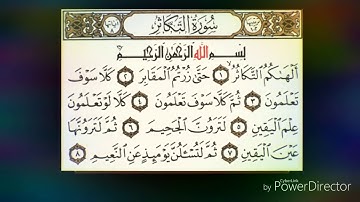 سُورَةُ التَّكَاثُرِ
بِسْمِ اللَّهِ الرَّحْمَٰنِ الرَّحِيمِ
أَلْهَاكُمُ التَّكَاثُرُ ١ حَتَّىٰ زُرْتُمُ الْمَقَابِرَ ٢ كَلَّا سَوْفَ
تَعْلَمُونَ ٣ ثُمَّ كَلَّا سَوْفَ تَعْلَمُونَ ٤ كَلَّا لَوْ تَعْلَمُونَ
عِلْمَ الْيَقِينِ ٥ لَتَرَوُنَّ الْجَحِيمَ ٦ ثُمَّ لَتَرَوُنَّهَا
عَيْنَ الْيَقِينِ ٧ ثُمَّ لَتُسْأَلُنَّ يَوْمَئِذٍ عَنِ النَّعِيمِ ٨
CyberLink
by PowerDirector